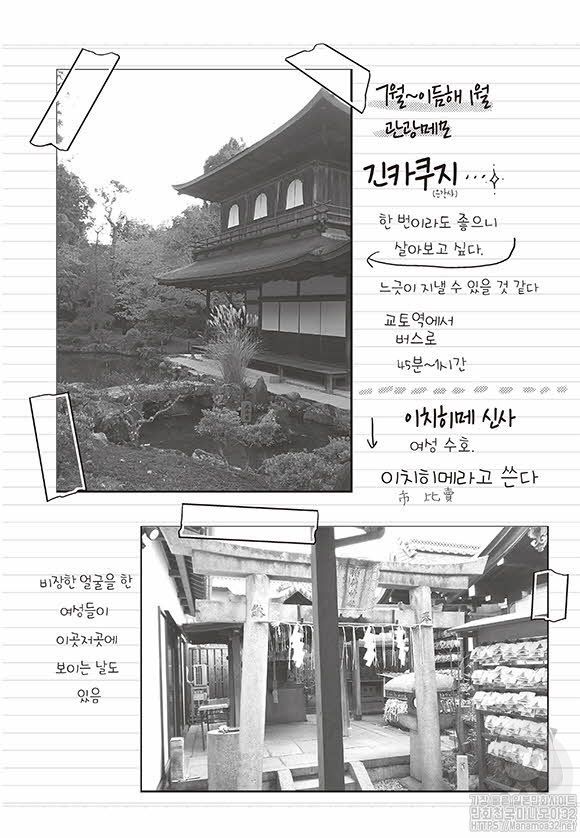 7월~이듬해 1월
관광메모
긴카쿠지...
(은각사)
한 번이라도 좋으니
살아보고 싶다.
느긋이 지낼 수 있을 것 같다
교토역에서
버스로
45분~1시간
이치히메 신사
여성 수호.
이치히메라고 쓴다
市 比賣
비장한 얼굴을 한
여성들이
이곳저곳에
보이는 날도
있음
가장 빠른 일본만화사이트
만화천국마나모아32
HTTPS://Manamoa32.com/